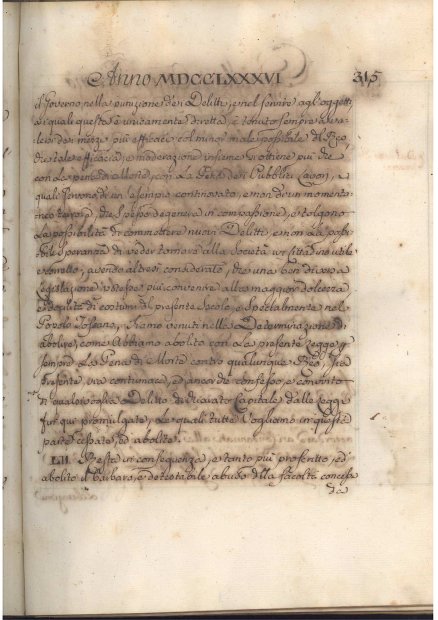 Anno MDCCLXXXVI 315
il Governo nella punizione dei Delitti, e nel servire agl'oggetti
ai quali questa è unicamente diretta, è tenuto sempre a va-
lersi dei mezzi più efficaci col minor male possibile al Reo,
che tale efficacia, e moderazione insieme si ottiene più che
con la pena di morte, con la Pena dei Pubblici Lavori, i
quali servono di un esempio continovato, e non di un momenta-
neo terrore, che spesso degenera in compassione, e tolgono
la possibilità di commettere nuovi Delitti, e non la possi-
bile speranza di veder tornare alla Società un Cittadino utile,
e corretto, avendo altresì considerato, che una ben diversa
Legislazione potesse più convenire alla maggior dolcezza,
e docilità di costumi del presente Secolo, e specialmente nel
Popolo Toscano, Siamo venuti nella Determinazione di
abolire, come Abbiamo abolito con la presente Legge per
sempre la Pena di Morte contro qualunque Reo, sia
presente, sia contumace, ed ancorchè confesso, e convinto
di qualsivoglia Delitto dichiarato Capitale dalle Leggi
fin qui promulgate, le quali tutte Vogliamo in questa
parte cessate, ed abolite.
LII. Resta in conseguenza, e tanto più proscritto, ed
abolito il barbaro, e detestabile abuso della facoltà concessa
da